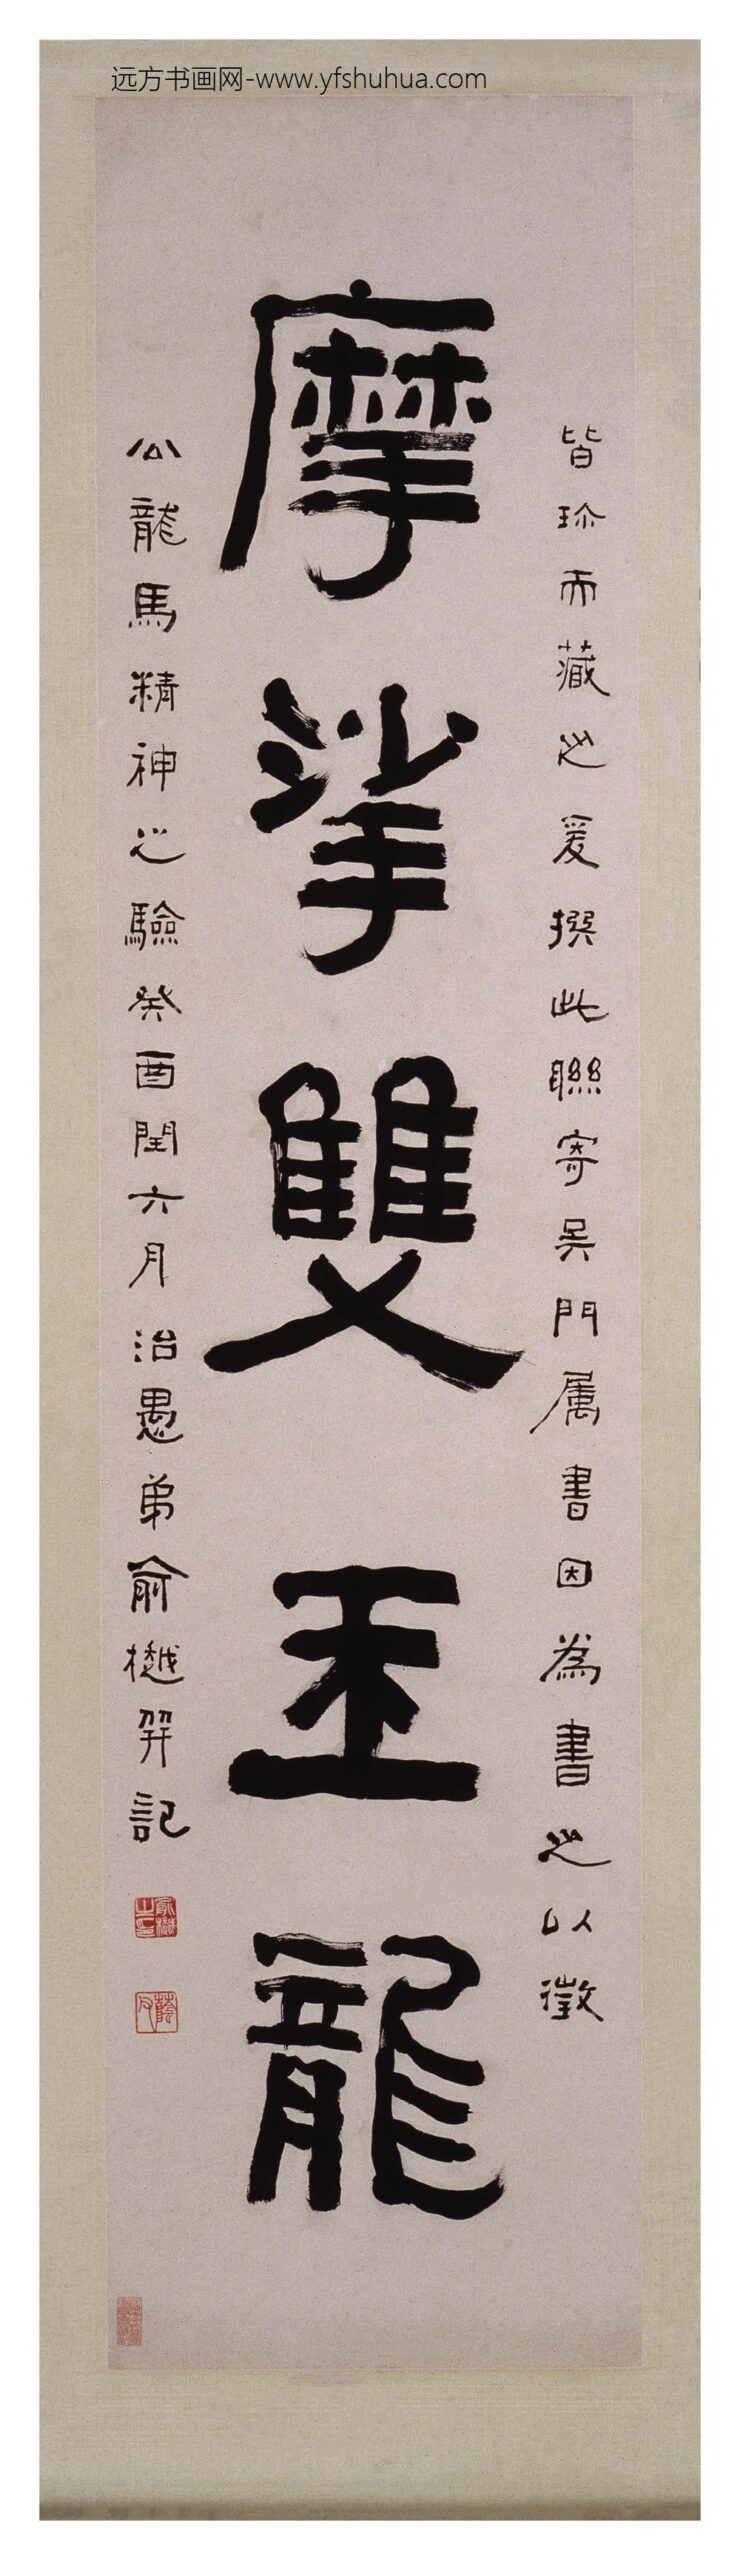 远方书画网-www.yfshuhua.com
皆珎而藏之爰撰此聯寄吴門属書因為書之以徵
摩挲雙玉龍
公龍馬精神之驗癸酉閏六月治愚弟俞樾笄記
俞樾之印